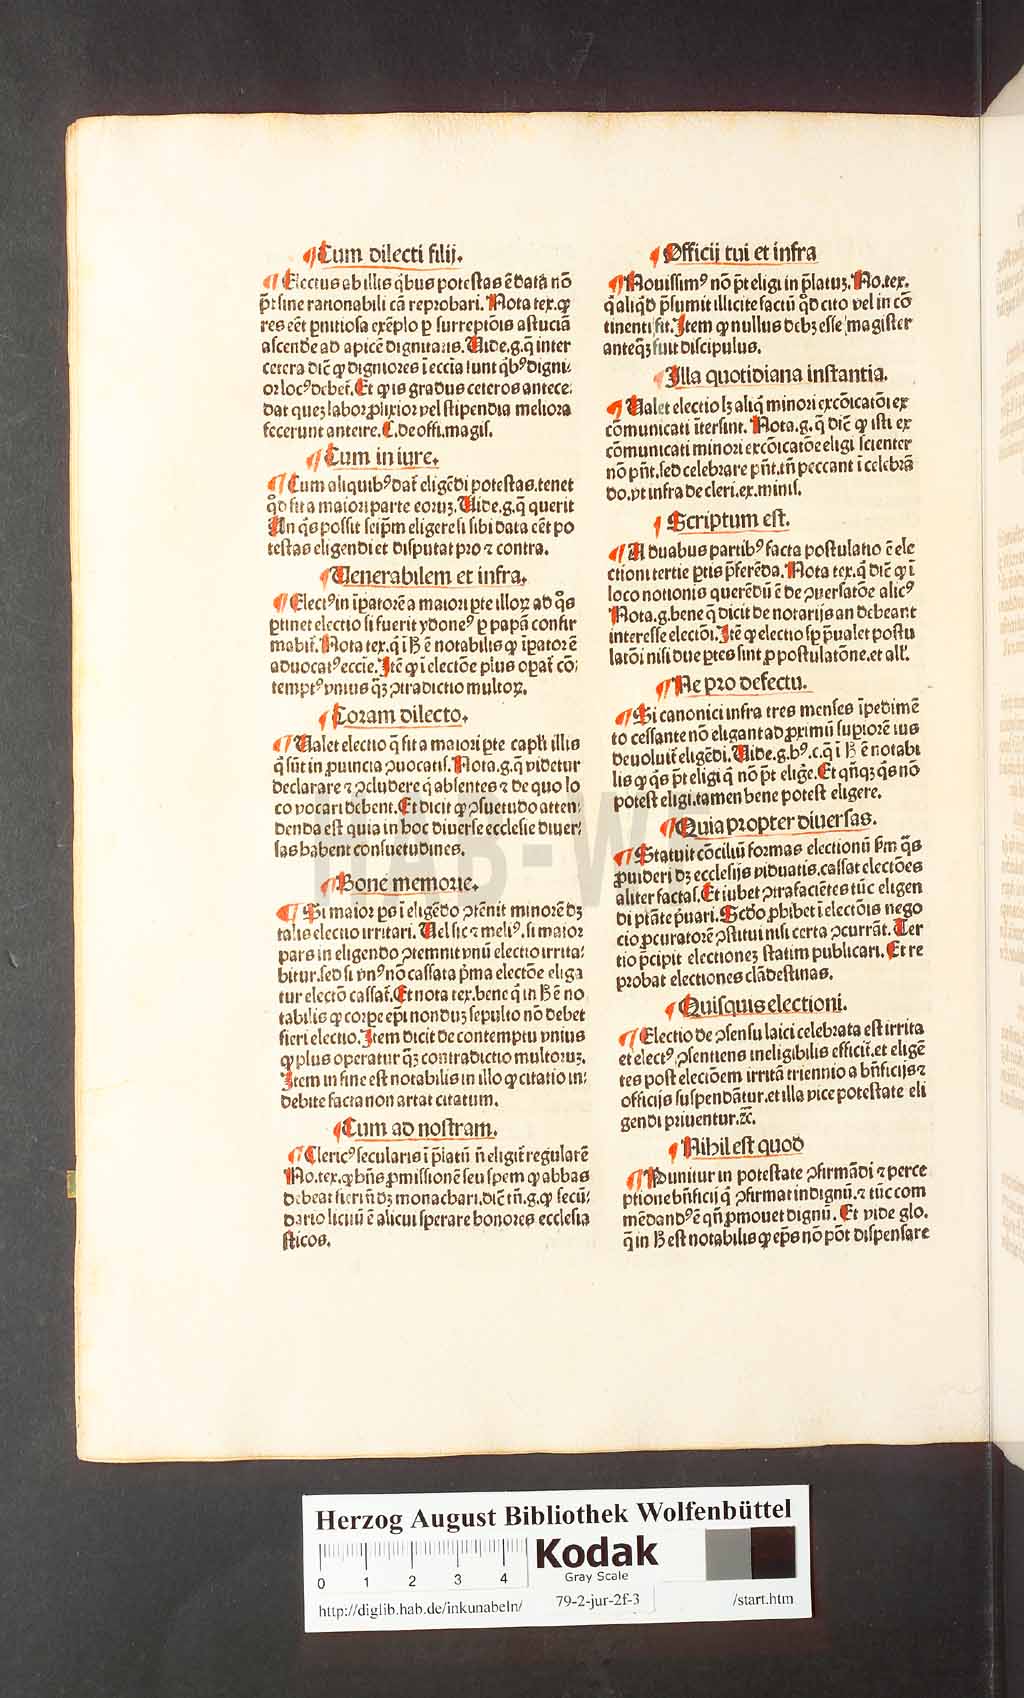 ¶Cum dilecti filij.
¶ Electus ab illis q̇bus potestas ē data nō
p̄t sine rationabili cā reprobari. Nota tex. ꝙ
res eēt ꝑnitiosa exēplo ꝑ surreptōis astuciā
ascende ad apicē dignitatis. Uide.g.q̄ inter
cetera dic̄ ꝙ digniores ī eccīa sunt q̇bꝰ digni⸗
or locꝰ debet̄. Et ꝙ is gradus ceteros antece⸗
dat quez labor ꝓlixior vel stipendia meliora
fecerunt anteire. C.de offi.magiſ.
¶Cum in iure.
¶Cum aliquibꝰ dat̄ eligēdi potestas. tenet
qd̄ fit a maiori parte eoruꝫ. Uide.g.q̄ querit
An q̇s possit seip̄m eligere si sibi data eēt po
testas eligendi et disputat pro ⁊ contra.
¶Uenerabilem et infra.
¶Electꝰ in īpatorē a maiori ꝑte illoꝝ ad q̊s
ꝑtinet electio si fuerit ydoneꝰ ꝑ papā confir
mabit̄. Nota tex.q̄ ī ꝶ ē notabilis ꝙ īpatorē
aduocatꝰ eccīe. Itē ꝙ ī electōe plus opat̄ cō⸗
temptꝰ vnius q̄ꝫ ɔtradictio multoꝝ.
¶Coram dilecto.
¶Ualet electio q̄ fit a maiori ꝑte capl̄i illis
q̇ sūt in ꝓuincia ɔuocatiſ. Nota.g.q̄ videtur
declarare ⁊ ɔcludere q̇ absentes ⁊ de quo lo
co vocari debent. Et dicit ꝙ ɔsuetudo atten⸗
denda est quia in hoc diuerse ecclesie diuer⸗
sas habent consuetudines.
¶Bone memorie.
¶Si maior ꝑs ī eligēdo ɔtēnit minorē dꝫ
talis electio irritari. Uel sic ⁊ meliꝰ. si maior
pars in eligendo ɔtemnit vnū electio irrita⸗
bitur. sed si vnꝰ nō cassata p̄ma electōe eliga
tur electō cassat̄. Et nota tex.bene q̄ in ꝶ ē no
tabilis ꝙ corꝑe ep̄i nonduꝫ sepulto nō debet
fieri electio. Item dicit de contemptu vnius
ꝙ plus operatur q̄ꝫ contradictio multoruꝫ.
Item in fine est notabilis in illo ꝙ citatio in⸗
debite facta non artat citatum.
¶Cum ad nostram.
¶Clericꝰ secularis ī p̄latū n̄ eligit̄ regularē
No.tex.ꝙ bn̄s ꝓmissionē seu spem ꝙ abbas
debeat fieri n̄ dꝫ monachari. dic̄ tn̄.g.ꝙ secū⸗
dario licitū ē alicui sperare honores ecclesia
sticos.
¶Officij tui et infra
¶Nouissimꝰ nō p̄t eligi in p̄latuꝫ. No.tex.
q̄ aliqd̄ p̄sumit̄ illicite factū qd̄ cito vel in cō
tinenti fit. Item ꝙ nullus debꝫ esse magister
anteq̄ꝫ fuit discipulus.
¶Illa quotidiana instantia.
¶Ualet electio lꝫ aliq̇ minori excōicatōi ex
cōmunicati īterſint. Nota.g.q̄ dic̄ ꝙ isti ex
cōmunicati minori excōicatōe eligi scienter
nō pn̄t. sed celebrare pn̄t. tn̄ peccant ī celebrā
do. vt infra de cleri.ex.miniſ.
¶ Scriptum est.
¶A duabus partibꝰ facta postulatio ē ele
ctioni tertie ꝑtis p̄ferēda. Nota tex.q̄ dic̄ ꝙ ī
loco notionis querēdū ē de ɔuersatōe alicꝰ
Nota.g.bene q̄ dicit de notarijs an debeant
interesse electōi. Itē ꝙ electio sꝑ p̄ualet postu
latōi nisi due ꝑtes sint ꝓ postulatōne. et all'.
¶Ne pro defectu.
¶Si canonici infra tres menses īpedimē
to cessante nō eligant ad ꝓximū suꝑiorē ius
deuoluit̄ eligēdi. Uide.g.hꝰ.c.q̄ ī ꝶ ē notabi
lis ꝙ q̇s p̄t eligi q̇ nō p̄t eligē. Et qn̄qꝫ q̇s nō
potest eligi. tamen bene potest eligere.
¶Quia propter diuersas.
¶Statuit cōciliū formas electionū ẜm q̄s
ꝓuideri dꝫ ecclesijs viduatis. cassat electōes
aliter factaſ. Et iubet ɔtrafaciētes tūc eligen
di ptāte p̄uari. Scdō ꝓhibet ī electōis nego
cio ꝓcuratorē ɔstitui nisi certa ɔcurrāt. Ter
tio p̄cipit electionez statim publicari. Et re
probat electiones clādestinas.
¶Quisquis electioni.
¶Electio de ɔsensu laici celebrata est irrita
et electꝰ ɔsentiens ineligibilis efficit̄. et eligē
tes post electiōem irritā triennio a bn̄ficijs ⁊
officijs suspendātur. et illa vice potestate eli
gendi priuentur.ꝛc̄.
¶Nihil est quod
¶Punitur in potestate ɔfirmādi ⁊ perce
ptione bn̄ficij q̇ ɔfirmat indignū. ⁊ tūc com
mēdandꝰ ē qn̄ ꝓmouet dignū. Et vide glo.
q̄ in ꝶ est notabilis ꝙ ep̄s nō pōt dispensare
HAB-WF
Herzog August Bibliothek Wolfenbüttel
0 1 2 3 4
Kodak
Gray Scale
http://diglib.hab.de/inkunabeln/ 79-2-jur-2f-3 /start.htm